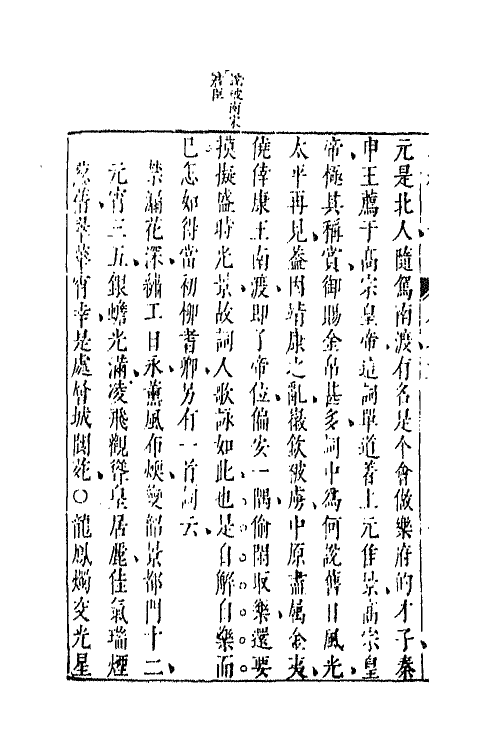 說破南宋
病根
元是北人隨駕南渡有名是个會做樂府的才子秦
申王薦于高宗皇帝這詞單道着上元佳景高宗皇
帝極其稱賞御賜金帛甚多詞中爲何說舊日風光
太平再見蓋因靖康之亂徽欽被虜中原盡屬金夷
僥倖康王南渡即了帝位偏安一隅偷閒取樂還要
摸擬盛時光景故詞人歌詠如此也是自解自樂而
已怎如得當初柳耆卿另有一首詞云
禁漏花深繡工日永薰風布煖變韶景都門十二
元宵三五銀蟾光滿凌飛觀聳皇居麗佳氣瑞煙
葱蒨翠華宵幸是處層城閬苑○龍鳳燭交光星